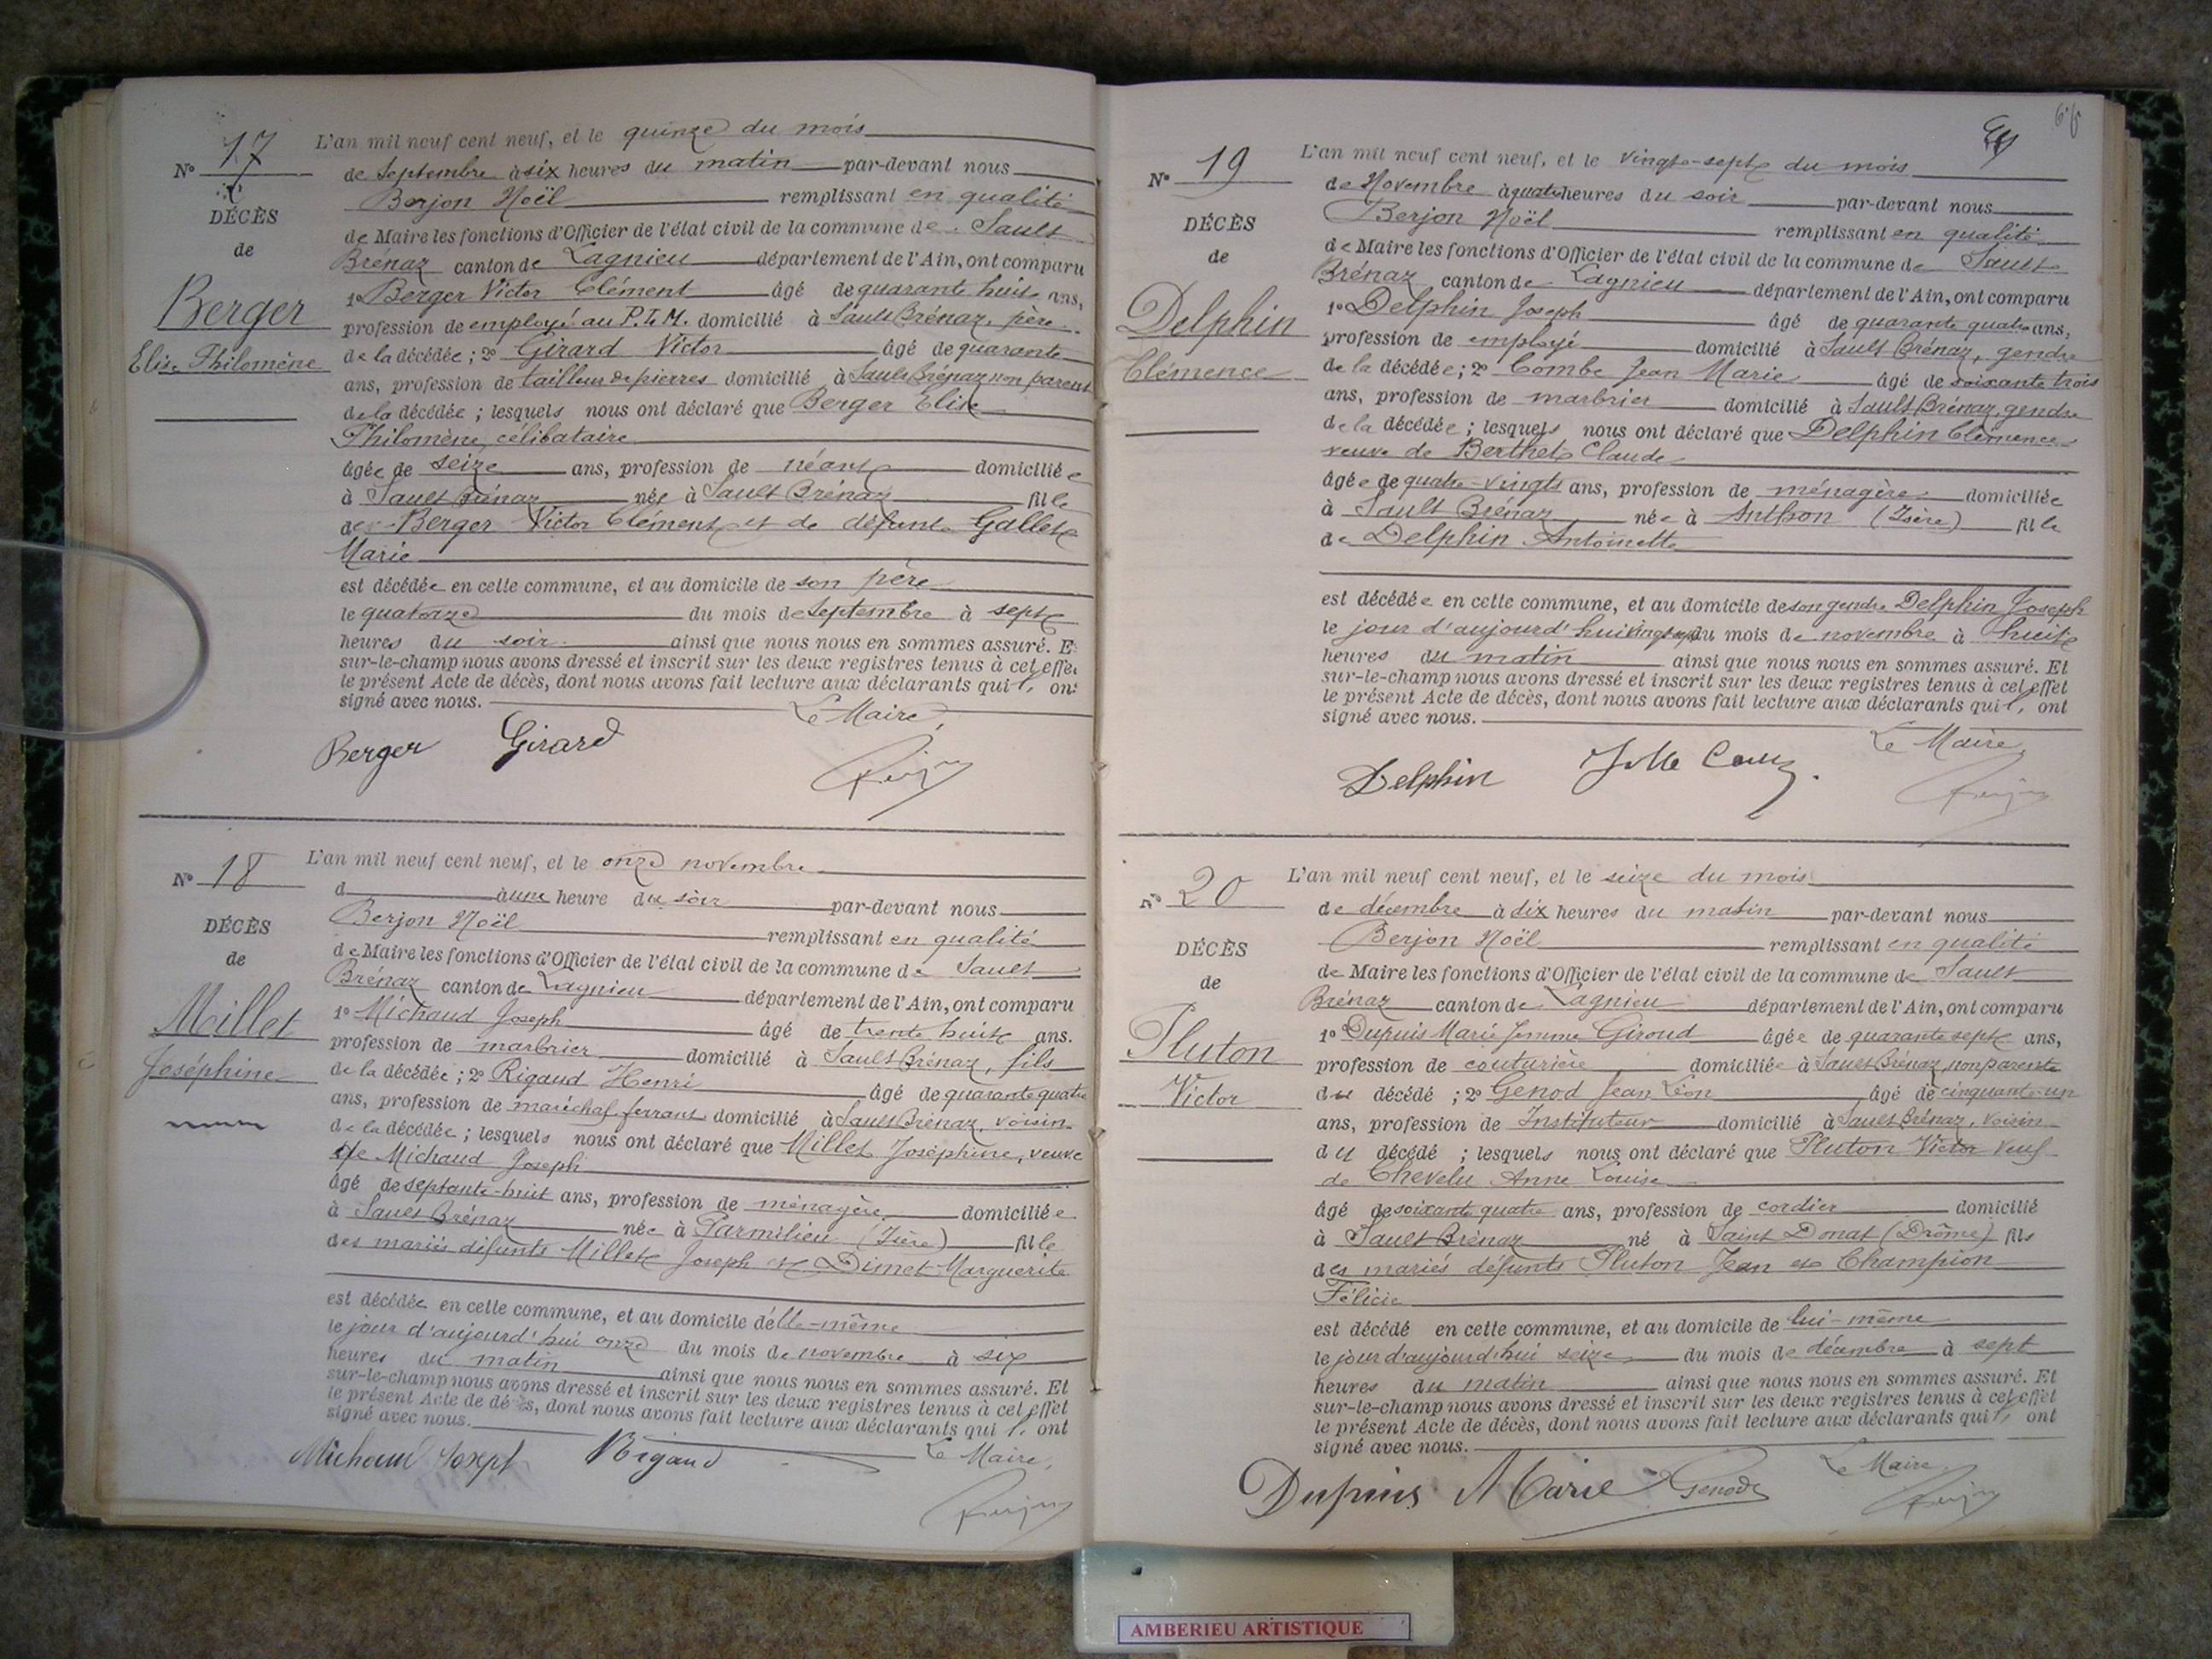 Nº 17
DÉCÈS
de
Berger
Elise Philomène
L'an mil neuf cent neuf, et le quinze du mois
de Septembre à six heures du matin par-devant nous
Berjon Noël remplissant en qualité
de Maire les fonctions d'Officier de l'état civil de la commune de Sault
Brénaz canton de Lagnieu département de l'Ain, ont comparu
1º Berger Victor Clément âgé de quarante huit ans,
profession de employé au P.L.M. domicilié à Sault Brénaz, père
de la décédée; 2º Girard Victor âgé de quarante
ans, profession de tailleur de pierres domicilié à Sault Brénaz non parent
de la décédée; lesquels nous ont déclaré que Berger Elise
Philomène, célibataire
âgée de seize ans, profession de néant domiciliée
à Sault Brénaz née à Sault Brénaz fille
de Berger Victor Clément et de défunte Gallet
Marie
est décédée en cette commune, et au domicile de son père
le quatorze du mois de Septembre à sept
heures du soir ainsi que nous nous en sommes assuré. E
sur-le-champ nous avons dressé et inscrit sur les deux registres tenus à cet effet
le présent Acte de décès, dont nous avons fait lecture aux déclarants qui ont
signé avec nous.
Le Maire,
Berger Girard
Nº 18
DÉCÈS
de
Millet
Joséphine
L'an mil neuf cent neuf, et le onze novembre
d à une heure du soir par-devant nous
Berjon Noël remplissant en qualité
de Maire les fonctions d'Officier de l'état civil de la commune de Sault
Brénaz canton de Lagnieu département de l'Ain, ont comparu
1º Michaud Joseph âgé de trente huit ans.
profession de marbrier domicilié à Sault Brénaz, fils
de la décédée; 2º Rigaud Henri âgé de quarante quatre
ans, profession de maréchal ferrant domicilié à Sault Brénaz, voisin
de la décédée; lesquels nous ont déclaré que Millet Joséphine, veuve
de Michaud Joseph
âgé de septante-huit ans, profession de ménagère domiciliée
à Sault Brénaz née à Parmilieu (Isère) fille
des mariés défunts Millet Joseph et Dimet Marguerite
est décédée en cette commune, et au domicile d'elle-même
le jour d'aujourd'hui onze du mois de novembre à six
heures du matin ainsi que nous nous en sommes assuré. Et
sur-le-champ nous avons dressé et inscrit sur les deux registres tenus à cet effet
le présent Acte de décès, dont nous avons fait lecture aux déclarants qui ont
signé avec nous.
Le Maire,
Michaud Josept Rigaud
Nº 19
DÉCÈS
de
Delphin
Clémence
L'an mil neuf cent neuf, et le vingt-sept du mois
de Novembre à quatre heures du soir par-devant nous
Berjon Noël remplissant en qualité
de Maire les fonctions d'Officier de l'état civil de la commune de Sault
Brénaz canton de Lagnieu département de l'Ain, ont comparu
1º Delphin Joseph âgé de quarante quatre ans,
profession de employé domicilié à Sault Brénaz, gendre
de la décédée; 2º Combe Jean Marie âgé de soixante trois
ans, profession de marbrier domicilié à Sault Brénaz, gendre
de la décédée; lesquels nous ont déclaré que Delphin Clémence
veuve de Berthet Claude
âgée de quatre-vingts ans, profession de ménagère domiciliée
à Sault Brénaz née à Anthon (Isère) fille
de Delphin Antoinette
est décédée en cette commune, et au domicile de son gendre Delphin Joseph
le jour d'aujourd'hui vingt sept du mois de novembre à huit
heures du matin ainsi que nous nous en sommes assuré. Et
sur-le-champ nous avons dressé et inscrit sur les deux registres tenus à cet effet
le présent Acte de décès, dont nous avons fait lecture aux déclarants qui ont
signé avec nous.
Le Maire,
Delphin
Nº 20
DÉCÈS
de
Pluton
Victor
L'an mil neuf cent neuf, et le seize du mois
de décembre à dix heures du matin par-devant nous
Berjon Noël remplissant en qualité
de Maire les fonctions d'Officier de l'état civil de la commune de Sault
Brénaz canton de Lagnieu département de l'Ain, ont comparu
1º Dupuis Marie femme Giroud âgée de quarante sept ans,
profession de couturière domiciliée à Sault Brénaz, non parente
du décédé; 2º Genod Jean Léon âgé de cinquante-un
ans, profession de Instituteur domicilié à Sault Brénaz, voisin
du décédé; lesquels nous ont déclaré que Pluton Victor veuf
de Chevelu Anne Louise
âgé de soixante quatre ans, profession de cordier domicilié
à Sault Brénaz né à Saint Donat (Drôme) fils
des mariés défunts Pluton Jean et Champion
Félicie
est décédé en cette commune, et au domicile de lui-même
le jour d'aujourd'hui seize du mois de décembre à sept
heures du matin ainsi que nous nous en sommes assuré. Et
sur-le-champ nous avons dressé et inscrit sur les deux registres tenus à cet effet
le présent Acte de décès, dont nous avons fait lecture aux déclarants qui ont
signé avec nous.
Le Maire,
Dupuis Marie Genod
AMBERIEU ARTISTIQUE